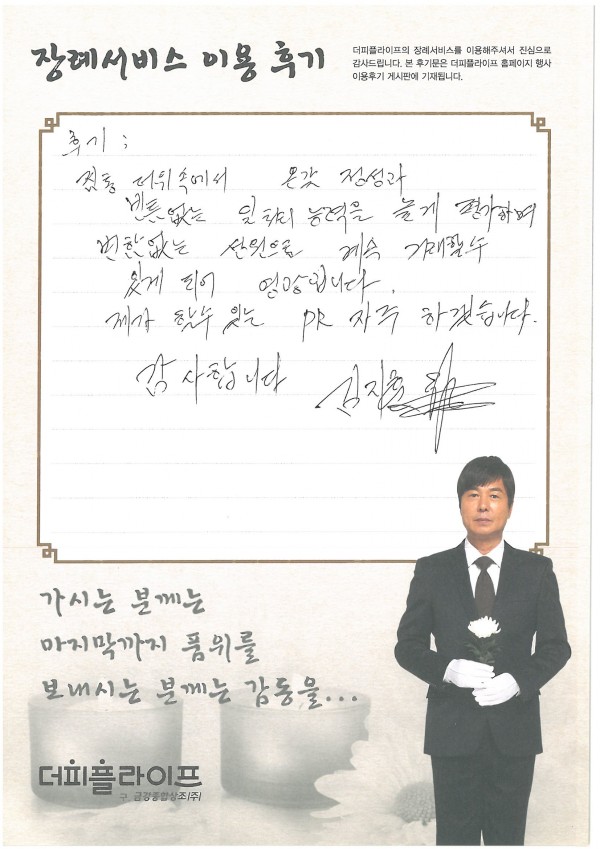 장례서비스 이용 후기
더피플라이프의 장례서비스를 이용해주셔서 진심으로
감사드립니다. 본 후기문은 더피플라이프 홈페이지 행사
이용후기 게시판에 기재됩니다.
후기 :
찜통 더위속에서 온갖 정성과
빈틈없는 일처리 능력을 높게 평가하며
변함없는 계속 기대할수
있게 되어 영광입니다.
제가 할수 있는 PR 자주 하겠습니다.
감사합니다
가시는 분께는
마지막까지 품위를
보내시는 분께는 감동을...
더피플라이프
구. 금강종합상조(주)